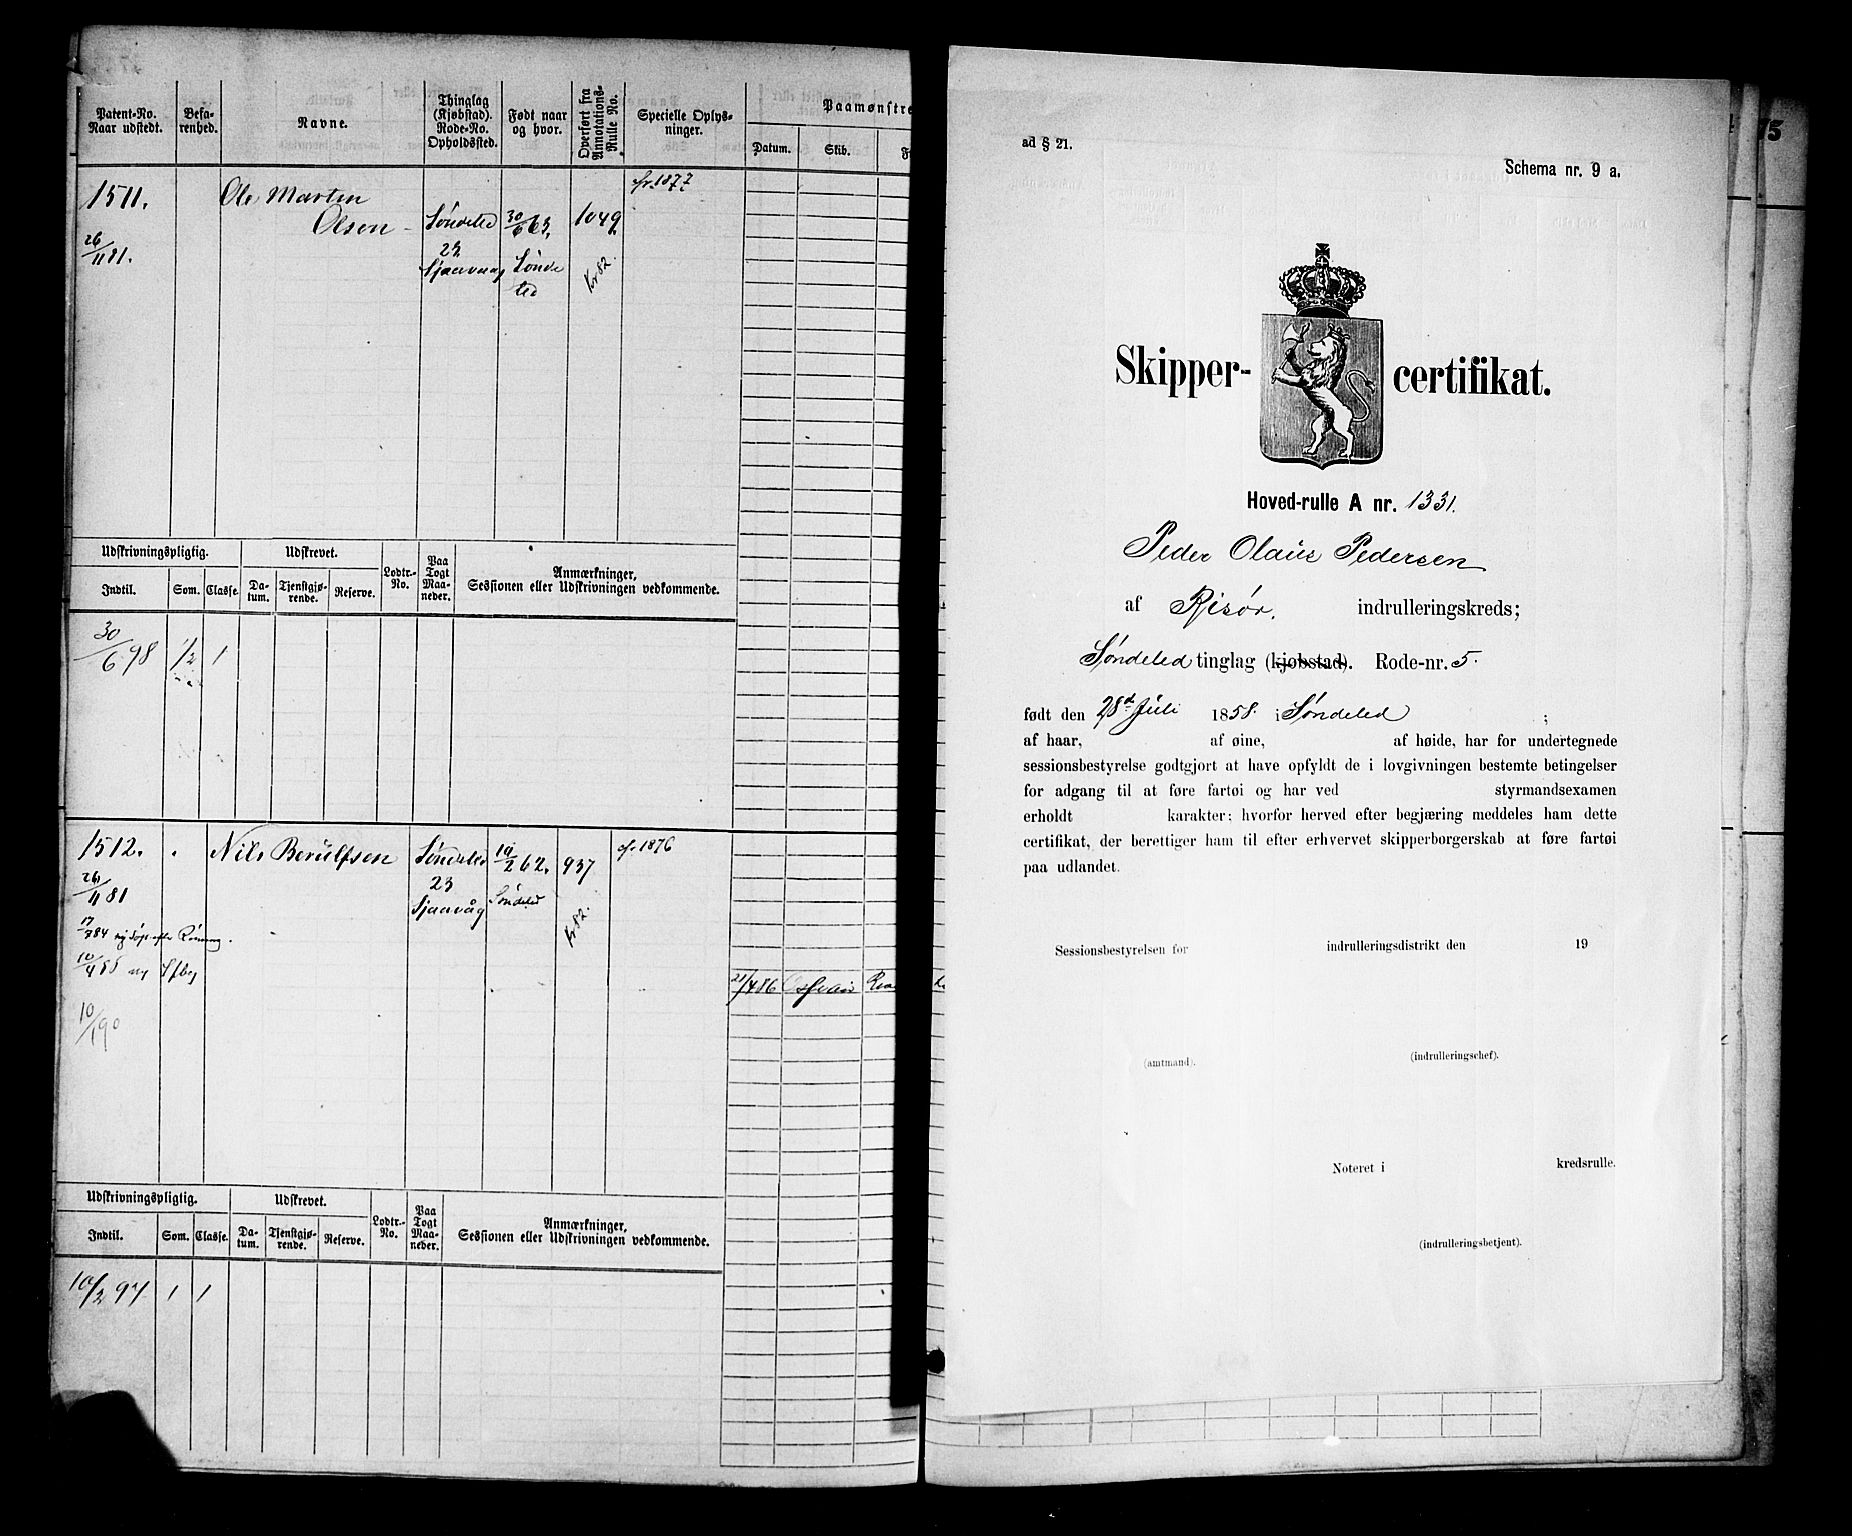 Patent-No.
Naar udstedt.
Befa-
renhed.
Navne.
Thinglag
(Kjøbstad).
Rode-No.
Opholdssted.
Født naar
og hvor.
Overført fra
Annotations-
Rulle No.
Specielle Oplys-
ninger.
Paamønstre
Datum.
Skib.
1511.
26/11 81.
Ole Martin
Olsen
Søndeled
23
Sjaavaag
30/6 63,
Sønde
led
1049.
Kr 82.
fr. 1877
Udskrivningspligtig.
Udskrevet.
Lodtr.-
No.
Paa
Togt
Maa-
neder.
Anmærkninger,
Sessionen eller Udskrivningen vedkommende.
Indtil.
Som.
Classe.
Da-
tum.
Tjenstgjø-
rende.
Reserve.
30/6 98
1/2
1
1512.
26/11 81
Nils Berulfsen
Søndeled
23
Sjaavåg
19/2 62.
Søndeled
937
Kr 82.
fr. 1876
10/1 90
21/4 86
Udskrivningspligtig.
Udskrevet.
Lodtr.-
No.
Paa
Togt
Maa-
neder.
Anmærkninger,
Sessionen eller Udskrivningen vedkommende.
Indtil.
Som.
Classe.
Da-
tum.
Tjenstgjø-
rende.
Reserve.
10/2 97
1
1
75
ad § 21.
Schema nr. 9 a.
Skipper-certifikat.
Hoved-rulle A nr. 1331.
Peder Olaus Pedersen
af Risør. indrulleringskreds;
Søndeled tinglag (kjøbstad). Rode-nr. 5.
født den 28d Juli 1858. i Søndeled ;
af haar, af øine, af høide, har for undertegnede
sessionsbestyrelse godtgjort at have opfyldt de i lovgivningen bestemte betingelser
for adgang til at føre fartøi og har ved styrmandsexamen
erholdt karakter; hvorfor herved efter begjæring meddeles ham dette
certifikat, der berettiger ham til efter erhvervet skipperborgerskab at føre fartøi
paa udlandet.
Sessionsbestyrelsen for indrulleringsdistrikt den 19
(amtmand).
(indrulleringschef).
Noteret i kredsrulle.
(indrulleringsbetjent).